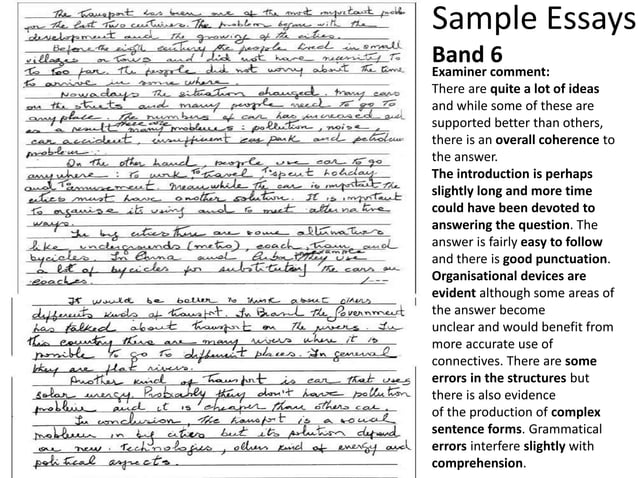 The transport has been one of the most important problem
for the last two centuries. The problem began with the
development and the growing of the cities.
Before the eigth century the people lived in small
villages or tows and did not have necessity to
to too far. The people did not worry about the time
to arrive in some where.
Nowadays the situation changed. Many cars
on the streets and many people need to go to
any place. The numbers of car has increased and
as a result there are many problems : pollution, noise,
car accident, insufficient car park and petroleum
problem.
On the other hand, people use car to go
anywhere : to work to travel to spent holiday
and to amusement. Meanwhile the car is important the
cities must have another solution. It is important
to organise its using and to meet alternative
ways.
In big cities there are some alternatives
like undergrounds (metro), coach, tram and
bycicles. In and Cuba example they use
a lot of bycicles for substitutory the cars or
coaches.
It would be better to think about others
differents kinds of transport. In the Government
has talked about transport on the rivers. In
this country there are many rivers where it is
possible to go to different places. In general
they are flat rivers.
Another kind of transport is car that uses
solar energy. Probably they don't have pollution
problem and it is cheaper than others car.
In conclusion, the transport is a usual
problem in big cities but its solution depend
on new technologies, others kind of energy and
political aspects.
Sample Essays
Band 6
Examiner comment:
There are quite a lot of ideas
and while some of these are
supported better than others,
there is an overall coherence to
the answer.
The introduction is perhaps
slightly long and more time
could have been devoted to
answering the question. The
answer is fairly easy to follow
and there is good punctuation.
Organisational devices are
evident although some areas of
the answer become
unclear and would benefit from
more accurate use of
connectives. There are some
errors in the structures but
there is also evidence
of the production of complex
sentence forms. Grammatical
errors interfere slightly with
comprehension.